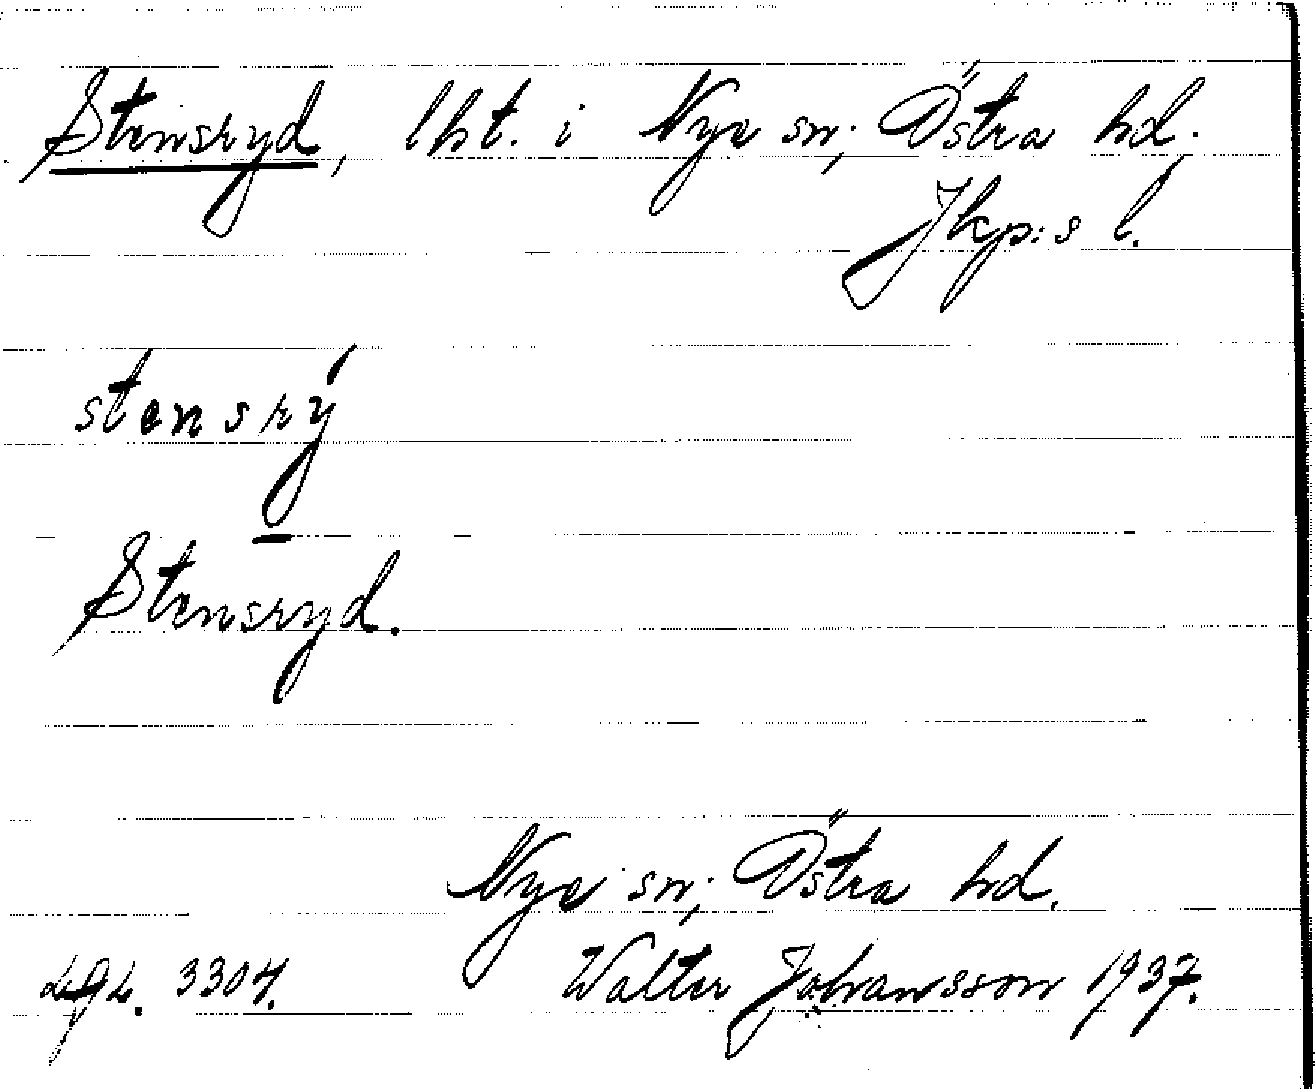 Stensryd, lht. i Nye sn; Östra hd.
Jkp:s l.
stensrý
Stensryd.
Nye sn; Östra hd.
3304. Walter Johansson 1937.